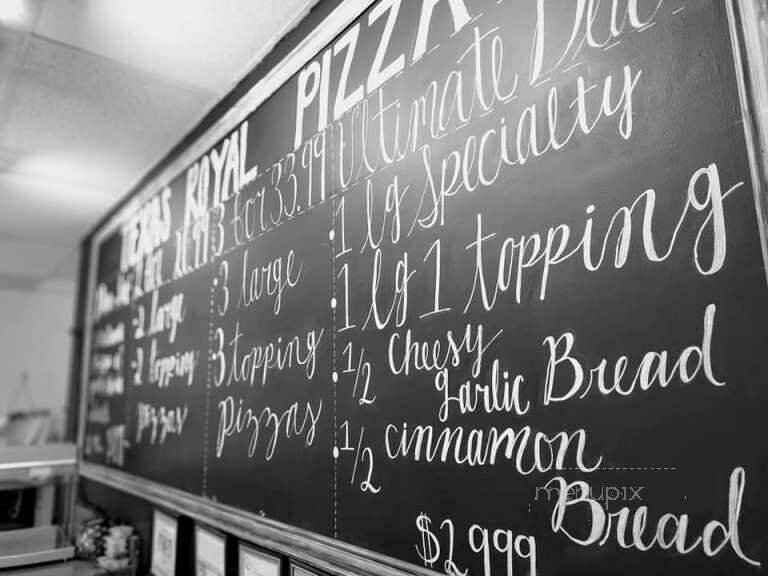 TEXAS ROYAL PIZZA
2 for
2 large
2 topping
pizzas
3 for 33.99
3 large
3 topping
pizzas
Ultimate
1 lg Specialty
1 lg 1 topping
1/2 Cheesy
garlic Bread
1/2 cinnamon
Bread
$2999
menupix